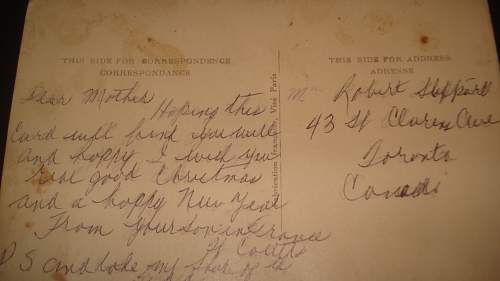 THIS SIDE FOR CORRESPONDENCE
CORRESPONDANCE
Dear Mother
Hoping this
Card will find you well
and happy I wish you
Real good Christmas
and a happy New Year
From your son in France
P S and take my share of the
Fabrication Française, Visé Paris
THIS SIDE FOR ADDRESS
ADRESSE
Mrs Robert Sheppard
43 St Clarens Ave
Toronto
Canada